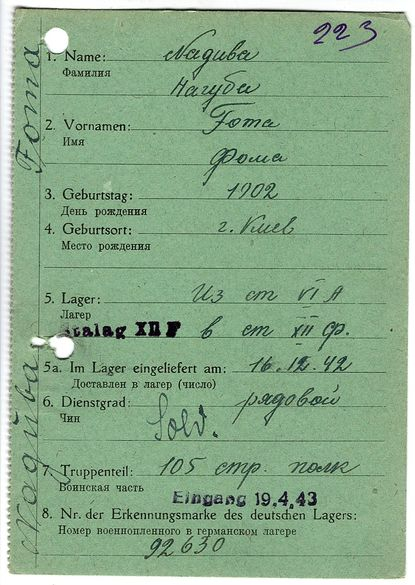 223
1. Name: Nadiba
Фамилия Нагуба
2. Vornamen: Foma
Имя Фома
3. Geburtstag: 1902
День рождения
4. Geburtsort: г. Киев
Место рождения
5. Lager: Из ст VI A
Лагер
Stalag XII F в ст XII Ф.
5a. Im Lager eingeliefert am: 16.12.42
Доставлен в лагер (число)
6. Dienstgrad: рядовой
Чин Sold.
7. Truppenteil: 105 стр. полк
Воинская часть
Eingang 19.4.43
8. Nr. der Erkennungsmarke des deutschen Lagers:
Номер военнопленного в германском лагере
92630
Naguba Foma